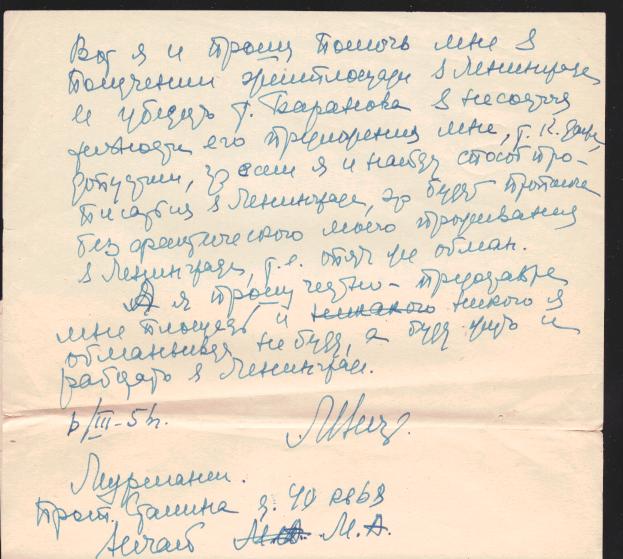 Вот я и прошу помочь мне в
получении жилплощади в Ленинграде
и убедить т. Баранова в несостоя
тельности его предложения мне, т.к. даже,
допустим, что если я и найду способ про-
писаться в Ленинграде, то будет прописка
без фактического моего проживания
в Ленинграде, т.е. опять же обман.
А я прошу честно - предоставьте
мне площадь и никакого никого я
обманывать не буду, а буду жить и
работать в Ленинграде.
/III-5
Мурманск.
Просп. Сталина д. 40 кв 69
М.А.